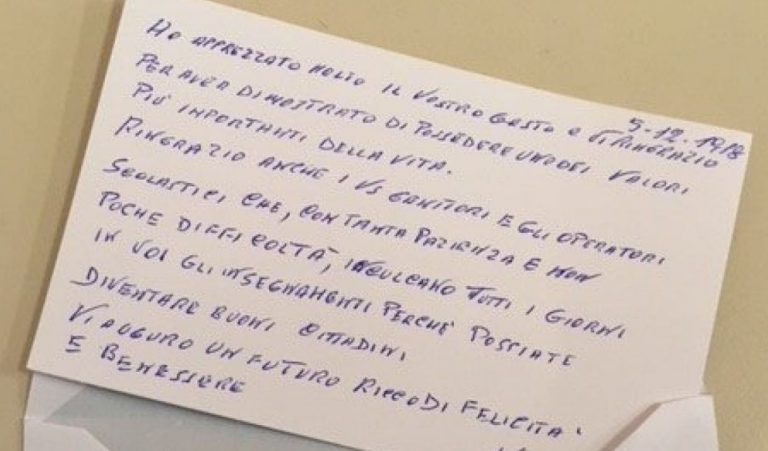 5.12.1918
Ho apprezzato molto il vostro gesto e vi ringrazio
per aver dimostrato di possedere uno dei valori
più importanti della vita.
Ringrazio anche i vs genitori e gli operatori
scolastici che, con tanta pazienza e non
poche difficoltà, inculcano tutti i giorni
in voi gli insegnamenti perché possiate
diventare buoni cittadini
Vi auguro un futuro ricco di felicità
e benessere